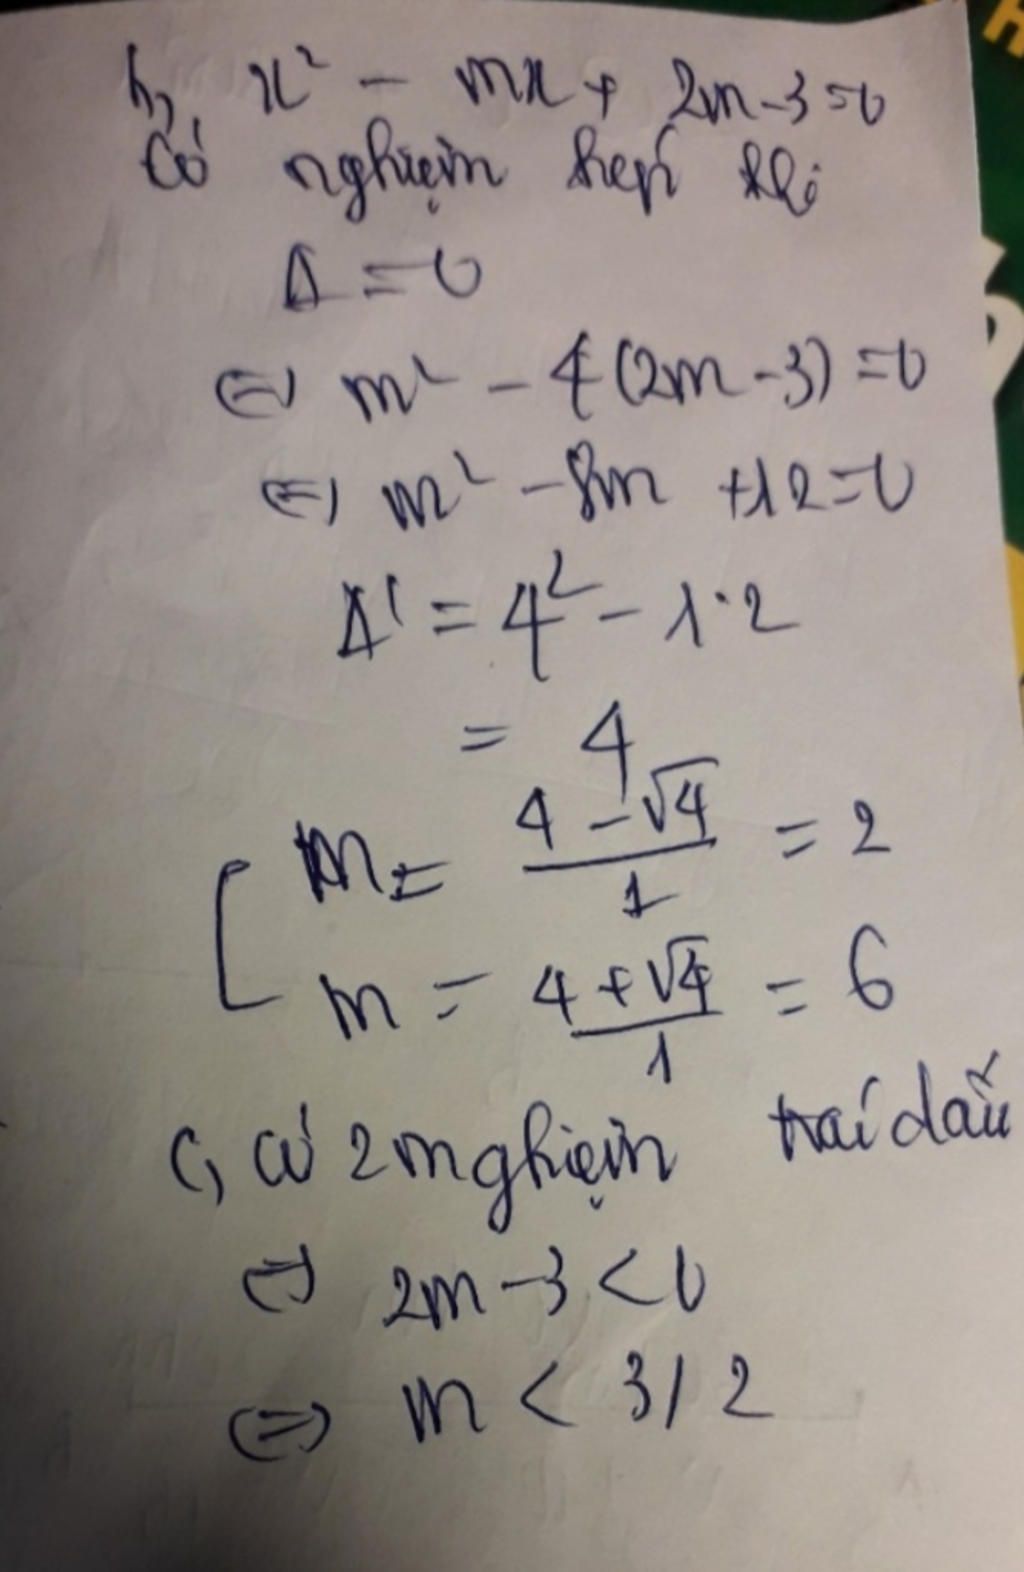 b, x² - mx + 2m - 3 = 0
Có nghiệm kép khi
Δ = 0
⇔ m² - 4(2m - 3) = 0
⇔ m² - 8m + 12 = 0
Δ' = 4² - 1.2
= 4
m = (4 - √4)/1 = 2
m = (4 + √4)/1 = 6
c, có 2 nghiệm trái dấu
⇔ 2m - 3 < 0
⇔ m < 3/2